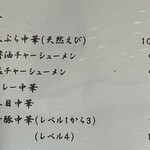 ぷら中華(天然えび) 10
油チャーシューメン
チャーシューメン
レー中華
目中華
豚中華(レベル1から3)
(レベル4)